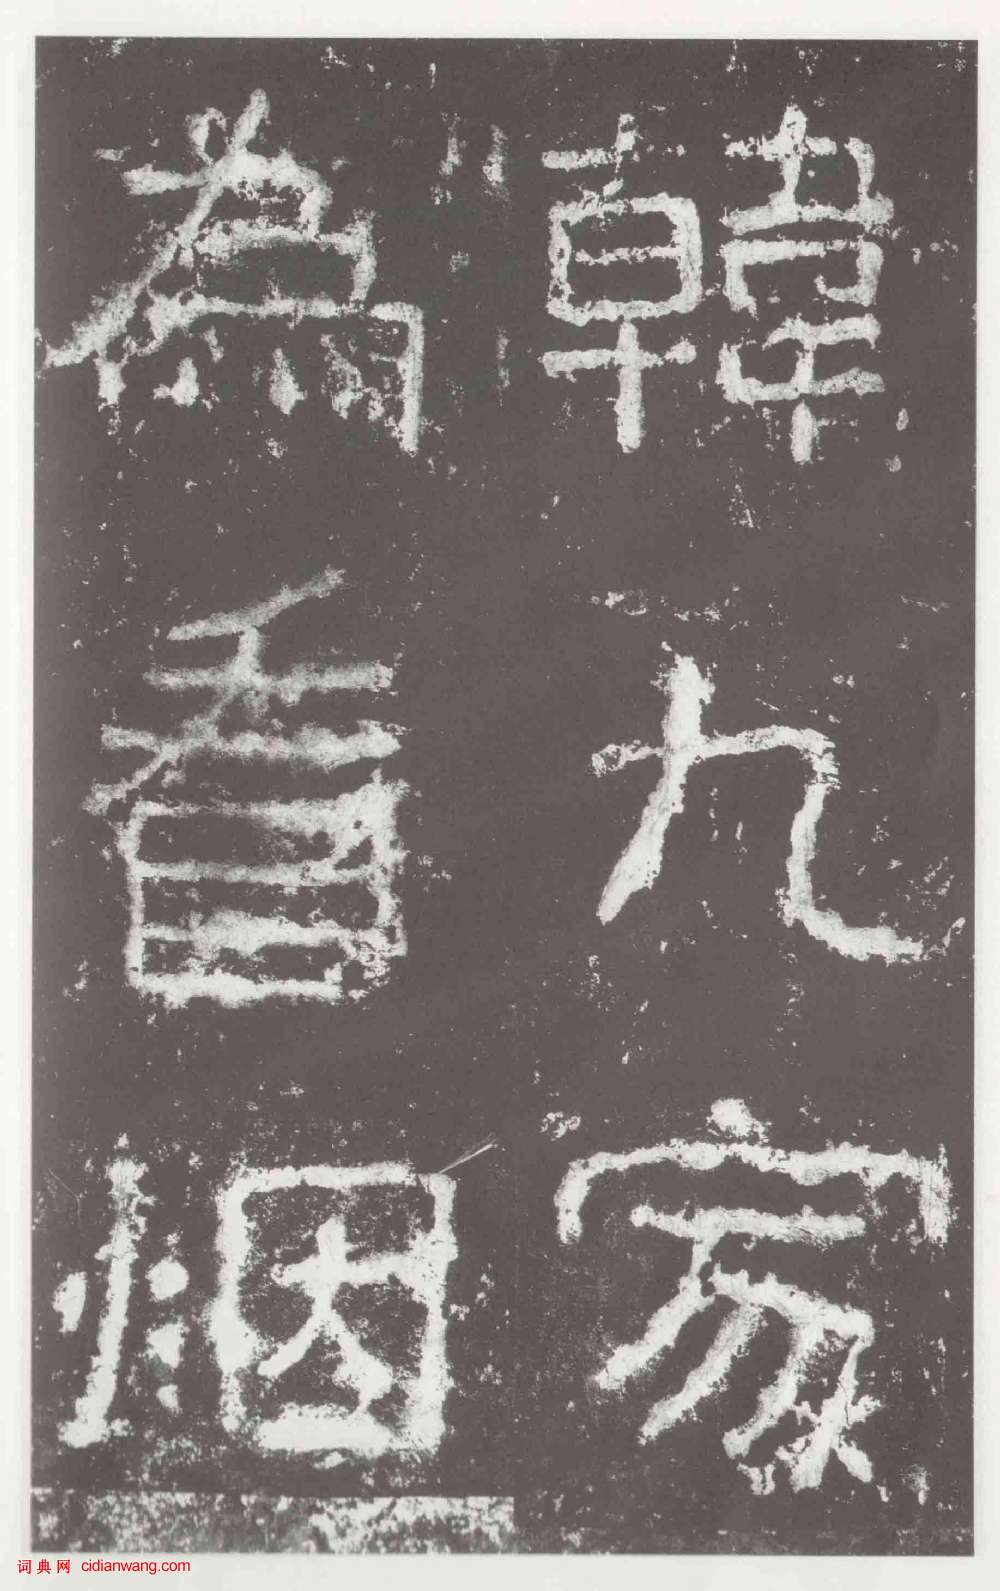 韓九家
為看烟
词典网 cidianwang.com